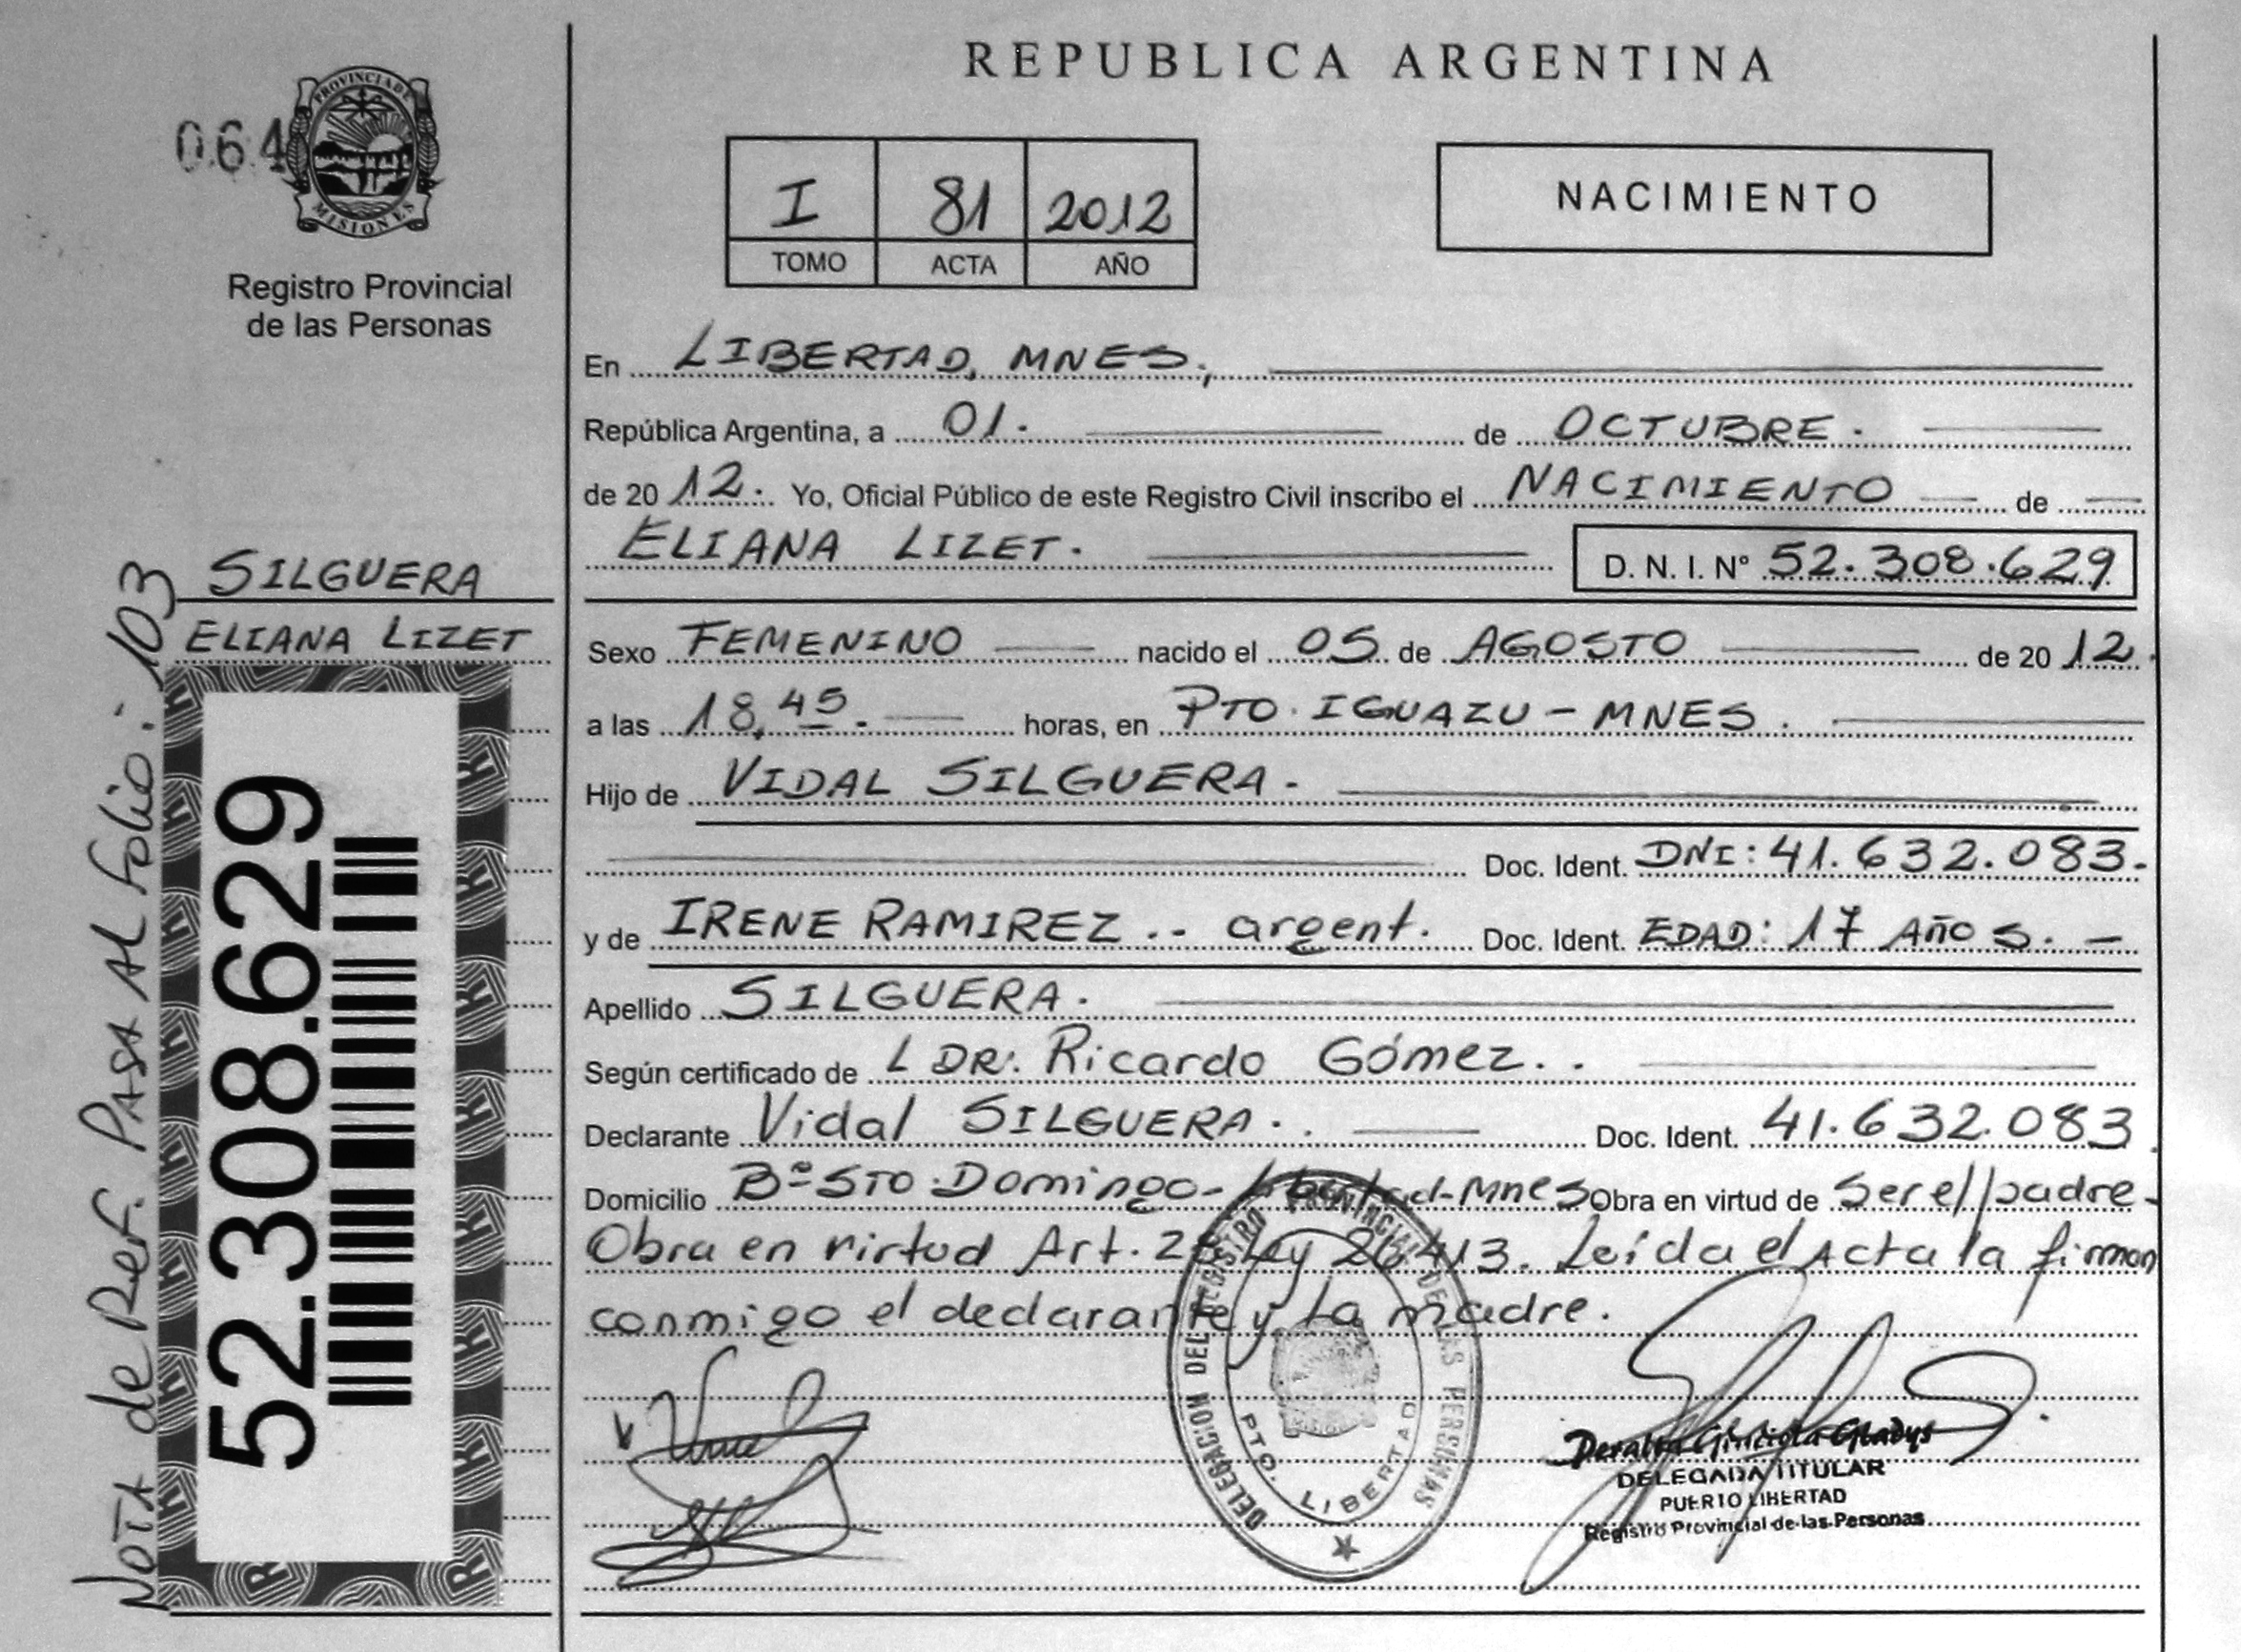 REPUBLICA ARGENTINA
064
PROVINCIA DE
MISIONES
Registro Provincial
de las Personas
I 81 2012
TOMO ACTA AÑO
NACIMIENTO
En LIBERTAD, MNES,
República Argentina, a 01. de OCTUBRE.
de 20 12. Yo, Oficial Público de este Registro Civil inscribo el NACIMIENTO de
ELIANA LIZET. D. N. I. N° 52.308.629
SILGUERA
ELIANA LIZET
Nota de Ref. PASA AL folio: 103
52.308.629
Sexo FEMENINO nacido el 05 de AGOSTO de 20 12.
a las 18,45. horas, en PTO. IGUAZU - MNES.
Hijo de VIDAL SILGUERA.
Doc. Ident. DNI: 41.632.083.
y de IRENE RAMIREZ .. argent. Doc. Ident. EDAD: 17 Años. -
Apellido SILGUERA.
Según certificado de L DR: Ricardo Gómez..
Declarante Vidal SILGUERA.. Doc. Ident. 41.632.083.
Domicilio Bº STO. Domingo - Libertad - Mnes Obra en virtud de Ser el padre -
Obra en virtud Art. 28 Ley 26.413. Leída el Acta la firman
conmigo el declarante y la madre.
DELEGACION DEL REGISTRO PROVINCIAL DE LAS PERSONAS
PTO. LIBERTAD
Peralta Gladys
DELEGADA TITULAR
PUERTO LIBERTAD
Registro Provincial de las Personas